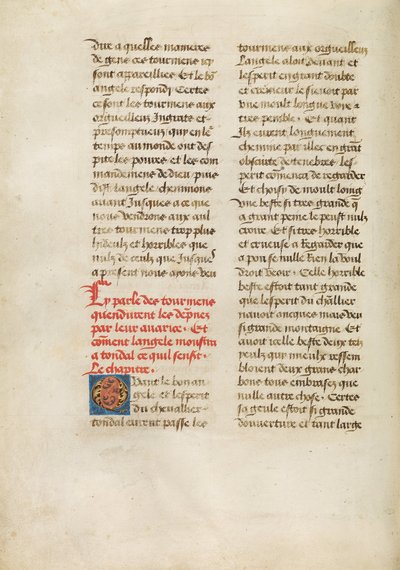 dire a quelles manieres
de gens ces tourmens icy
sont appareillies Et le bo
angele respondy Certes
ce sont les tourmens aux
orgueilleux Ingrats et
presomptueux qui en le
temps au monde ont des
pite les poures et les com
mandemens de dieu puis
dist langele cheminons
auant Jusques a ce que
nous vendrons aux aul
tres tourmens trop plus
hideulx et horribles que
nulz de ceulx que Jusques
a present nous ayons veu
Cy parle des tourmens
quendurent les dapnes
par leur auarice. Et
coment langele monstra
a tondal ce quil sensit.
le chapitre.
Quant le bon an
gele et lesperit
du cheualier
tondal eurent passe les
tourmens aux orgueilleux
Langele aloit deuant et
lesperit en grant doubte
et cremeur le sieuoit par
vne moult longue voye a
tres penible. Et quant
Ilz eurent longuement
chemine par illec en grat
obscurte de tenebres les
perit comenca de regarder
Et choisi de moult loing
vne beste si tres grande q
a grant peine le peust nulz
croire Et si tres horrible
et crueuse a Regarder que
a pou se nulle Rien la voul
droit veoir. Celle horrible
beste estoit tant grande
que lesperit du chlier
nauoit oncques mais veu
si grande montaigne Et
auoit icelle beste deux tes
peaulz qui mieulx ressem
bloient deux grans char
bons tous embrases que
nulle autre chose. Certes
sa geule estoit si grande
douuerture et tant large